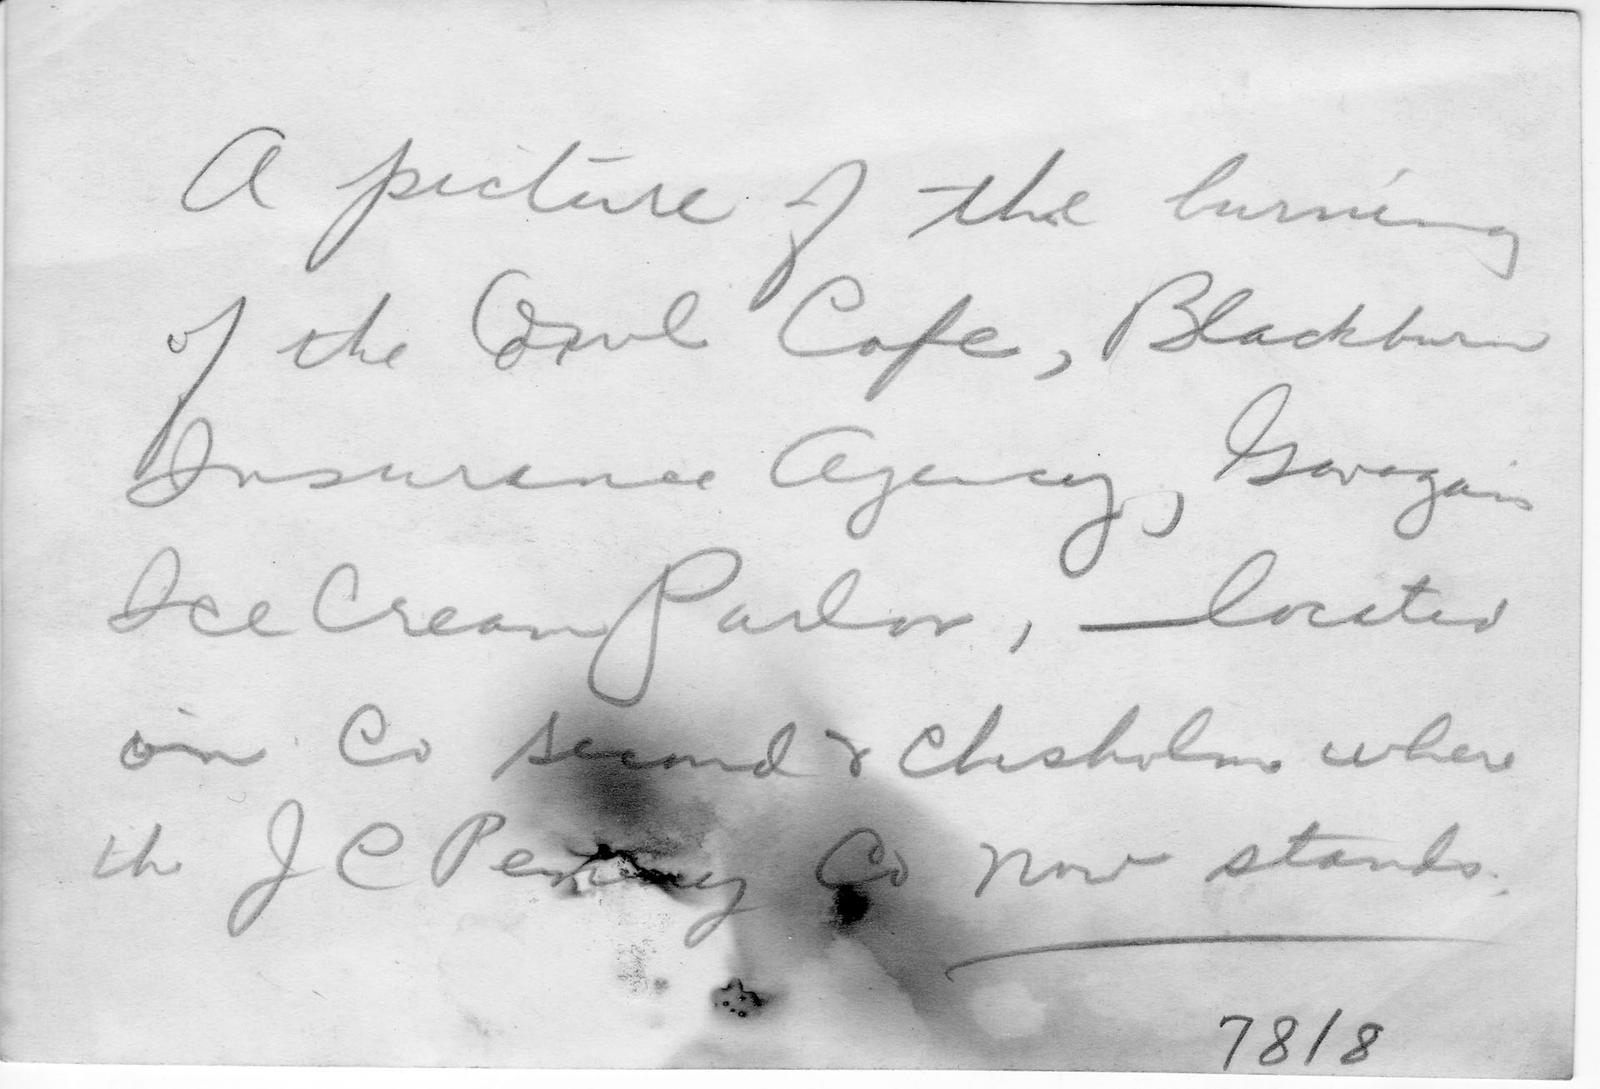 A picture of the burning
of the Owl Cafe, Blackburn
Insurance Agency,
Ice Cream Parlor, — located
on Co second & Chisholm where
the J C Penney Co now stands.
78/8